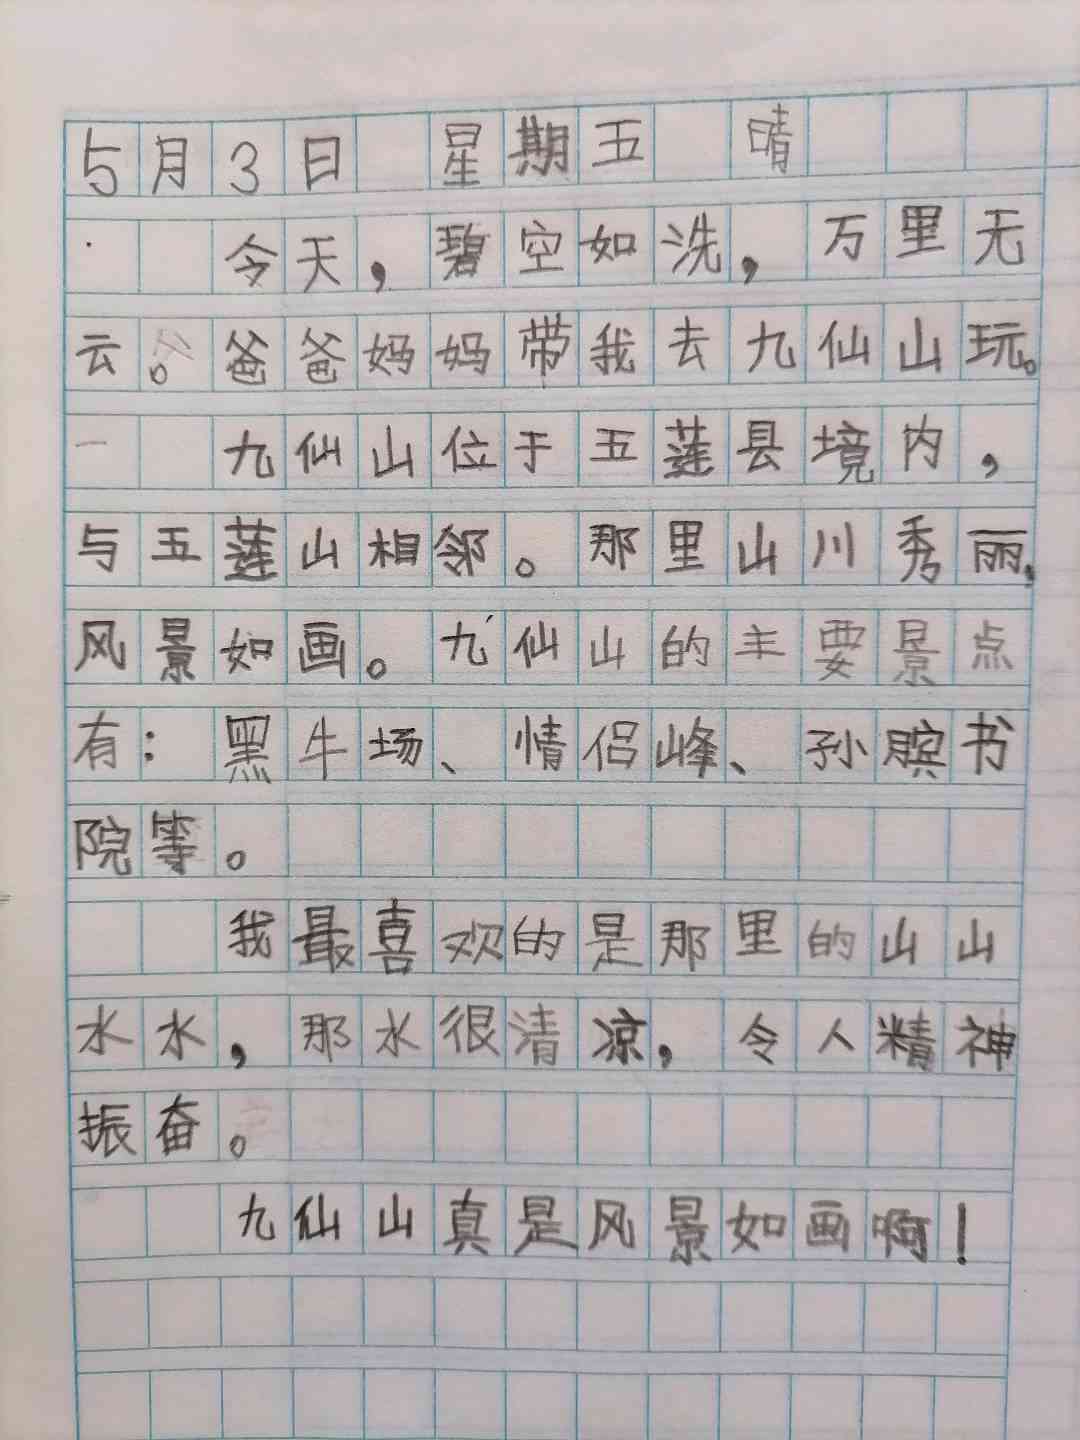 5月3日 星期五 晴
今天，碧空如洗，万里无
云。爸爸妈妈带我去九仙山玩。
九仙山位于五莲县境内，
与五莲山相邻。那里山川秀丽，
风景如画。九仙山的主要景点
有：黑牛场、情侣峰、孙膑书
院等。
我最喜欢的是那里的山山
水水，那水很清凉，令人精神
振奋。
九仙山真是风景如画啊！